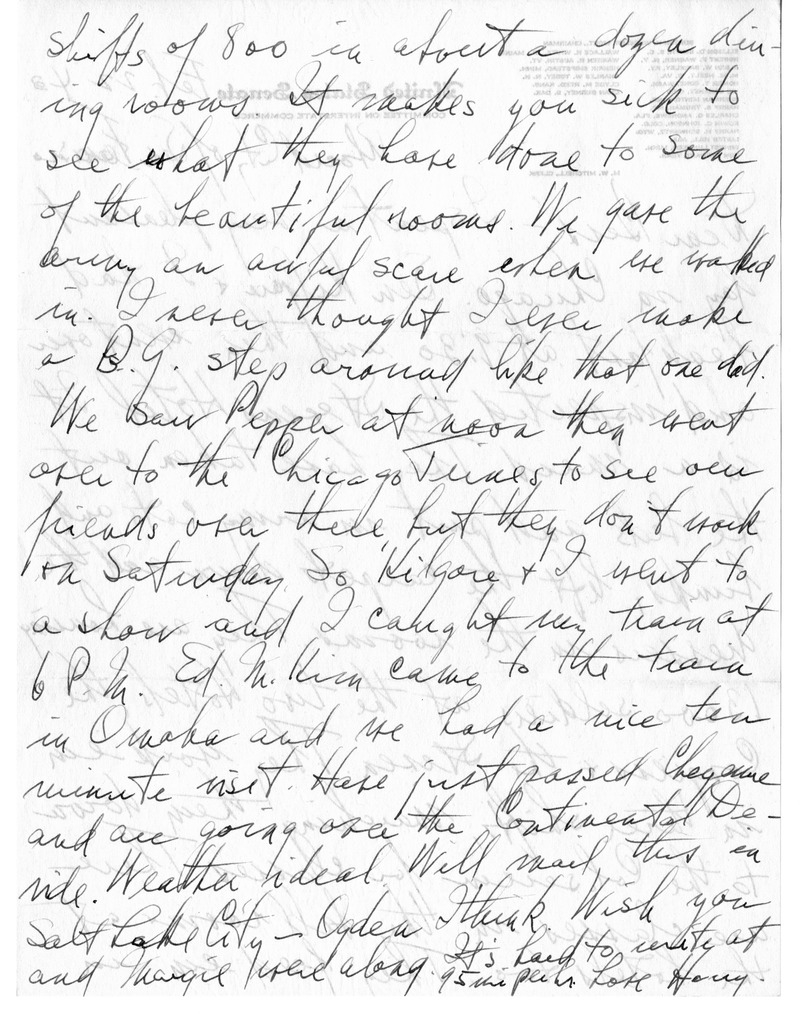 shifts of 800 in about a dozen din-
ing rooms. It makes you sick to
see what they have done to some
of the beautiful rooms. We gave the
army an awful scare when we walked
in. I never thought I ever make
a B.G. step around like that one did.
We saw Pepper at noon then went
over to the Chicago Times to see our
friends over there, but they don't work
on Saturday. So Kilgore & I went to
a show and I caught my train at
6 P.M. Ed. M. Kim came to the train
in Omaha and we had a nice ten
minute visit. Have just passed Cheyenne
and are going over the Continental De-
vide. Weather ideal. Will mail this in
Salt Lake City – Ogden I think. Wish you
and Margie were along. It's hard to write at
95 mi per hr. Love Harry.